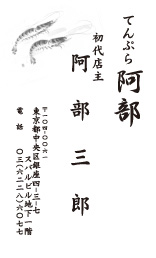 てんぷら 阿部
初代店主
阿部三郎
〒一〇四-〇〇六一
東京都中央区銀座四-三-七
スバルビル地下一階
電話 〇三(六二二八)六〇七七